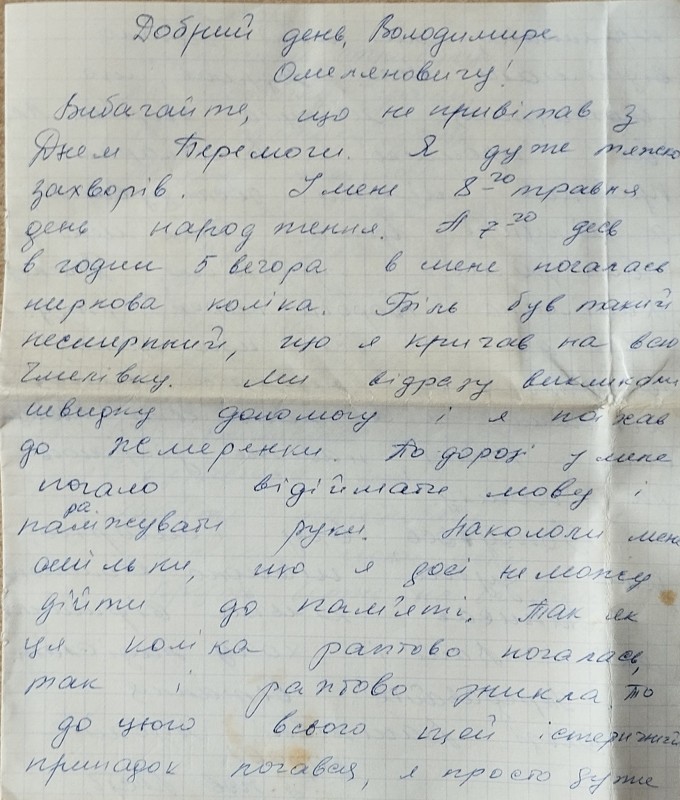 Добрий день, Володимире
Омеляновичу!
Вибачайте, що не привітав з
Днем Перемоги. Я дуже тяжко
захворів. У мене 8-го травня
день народження. А 7-го десь
в годин 5 вечора в мене почалась
ниркова коліка. Біль був такий
нестирпний, що я кричав на всю
Чмелівку. Ми відразу викликали
швидку допомогу і я поїхав
до Жмеринки. По дорозі у мене
почало відіймати мову і
паралiжувати руки. Накололи мене
скільки, що я досі не можу
дійти до пам'яті. Так як
ця коліка раптово почалась,
так і раптово зникла. То
до цього всього щей істеричний
припадок почався, я просто дуже